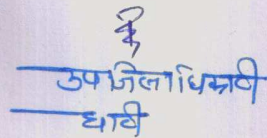 उपजिलाधिकारी
धारी